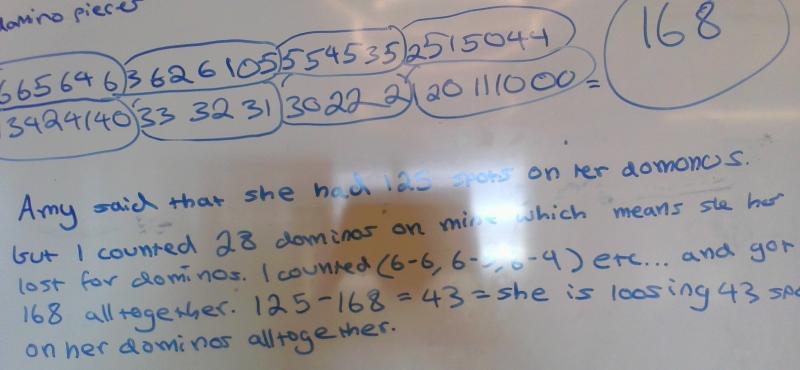 domino pieces
665646 3626105 554535 2515044
3424140 33 3231 3022 2 120 111000 = 168
Amy said that she had 125 spots on her domonos.
but I counted 28 dominos on mine which means she has
lost for dominos. I counted (6-6, 6-5, 6-4) etc... and got
168 alltogether. 125-168 = 43 = she is loosing 43
on her dominos alltogether.